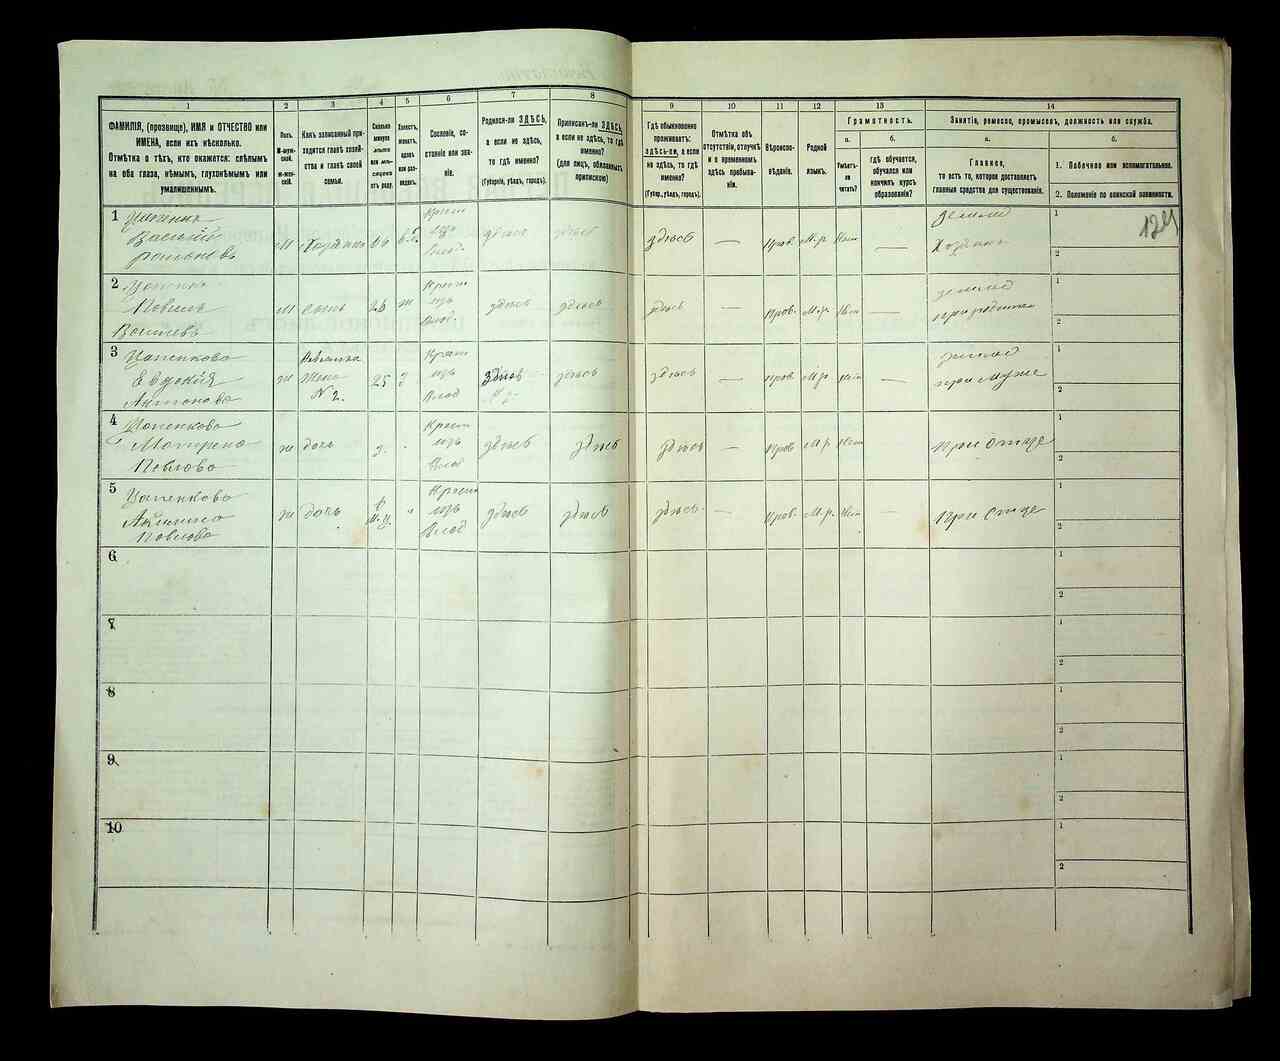 1
ФАМИЛІЯ, (прозвище), ИМЯ и ОТЧЕСТВО или
ИМЕНА, если ихъ нѣсколько.
Отмѣтка о тѣхъ, кто окажется: слѣпымъ
на оба глаза, нѣмымъ, глухонѣмымъ или
умалишеннымъ.
2
Полъ.
М-муж-
ской.
Ж-жен-
скій.
3
Какъ записанный при-
ходится главѣ хозяй-
ства и главѣ своей
семьи.
4
Сколько
минуло
лѣтъ
или мѣ-
сяцевъ
отъ роду.
5
Холостъ,
женатъ,
вдовъ
или раз-
веденъ.
6
Сословіе, со-
стояніе или зва-
ніе.
7
Родился-ли ЗДѢСЬ,
а если не здѣсь,
то гдѣ именно?
(Губернія, уѣздъ, городъ).
8
Приписанъ-ли ЗДѢСЬ,
а если не здѣсь, то гдѣ
именно?
(для лицъ, обязанныхъ
припискою)
9
Гдѣ обыкновенно
проживаетъ:
здѣсь-ли, а если
не здѣсь, то гдѣ
именно?
(Губер., уѣздъ, городъ).
10
Отмѣтка объ
отсутствіи, отлучкѣ
и о временномъ
здѣсь пребыва-
ніи.
11
Вѣроиспо-
вѣданіе.
12
Родной
языкъ.
13
Грамотность.
а.
Умѣетъ-
ли
читать?
б.
Гдѣ обучается,
обучался или
кончилъ курсъ
образованія?
14
Занятіе, ремесло, промыселъ, должность или служба.
а.
Главное,
то есть то, которое доставляетъ
главныя средства для существованія.
б.
1. Побочное или вспомогательное.
2. Положеніе по воинской повинности.
124
1
Василій
м
здѣсь
здѣсь
здѣсь
—
Прав.
М.р.
Нѣт
—
землед
Хозяинъ
1
2
2
м
сынъ
26
ж
здѣсь
здѣсь
здѣсь
—
Прав.
М.р.
Нѣт
—
землед
1
2
3 Цапенкова
Евдокія
Антонова
ж
Жена
№ 2.
25
з
Крест
изъ
Влад
здѣсь
здѣсь
здѣсь
—
Прав
М.р
нѣт
—
землед
при Мужѣ
1
2
4 Цапенкова
Матрена
Павлова
ж
дочь
3.
Крест
изъ
Влад
здѣсь
здѣсь
здѣсь
—
Прав
М.р.
Нѣт
—
При Отцѣ
1
2
5 Цапенкова
Павлова
ж
дочь
Крест
изъ
Влад
здѣсь
здѣсь
здѣсь
—
Прав.
М.р.
Нѣт
—
При Отцѣ
1
2
6
1
2
7
1
2
8
1
2
9
1
2
10
1
2